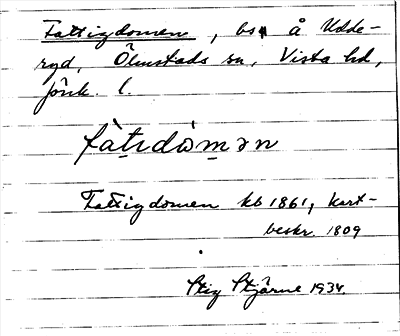 Fattigdomen, bs å Udde-
ryd, Ölmstads sn, Vista hd,
Jönk. l.
fàtɩdòmən
Fattigdomen kb 1861, kart-
beskr 1809
Stig Stjärne 1934